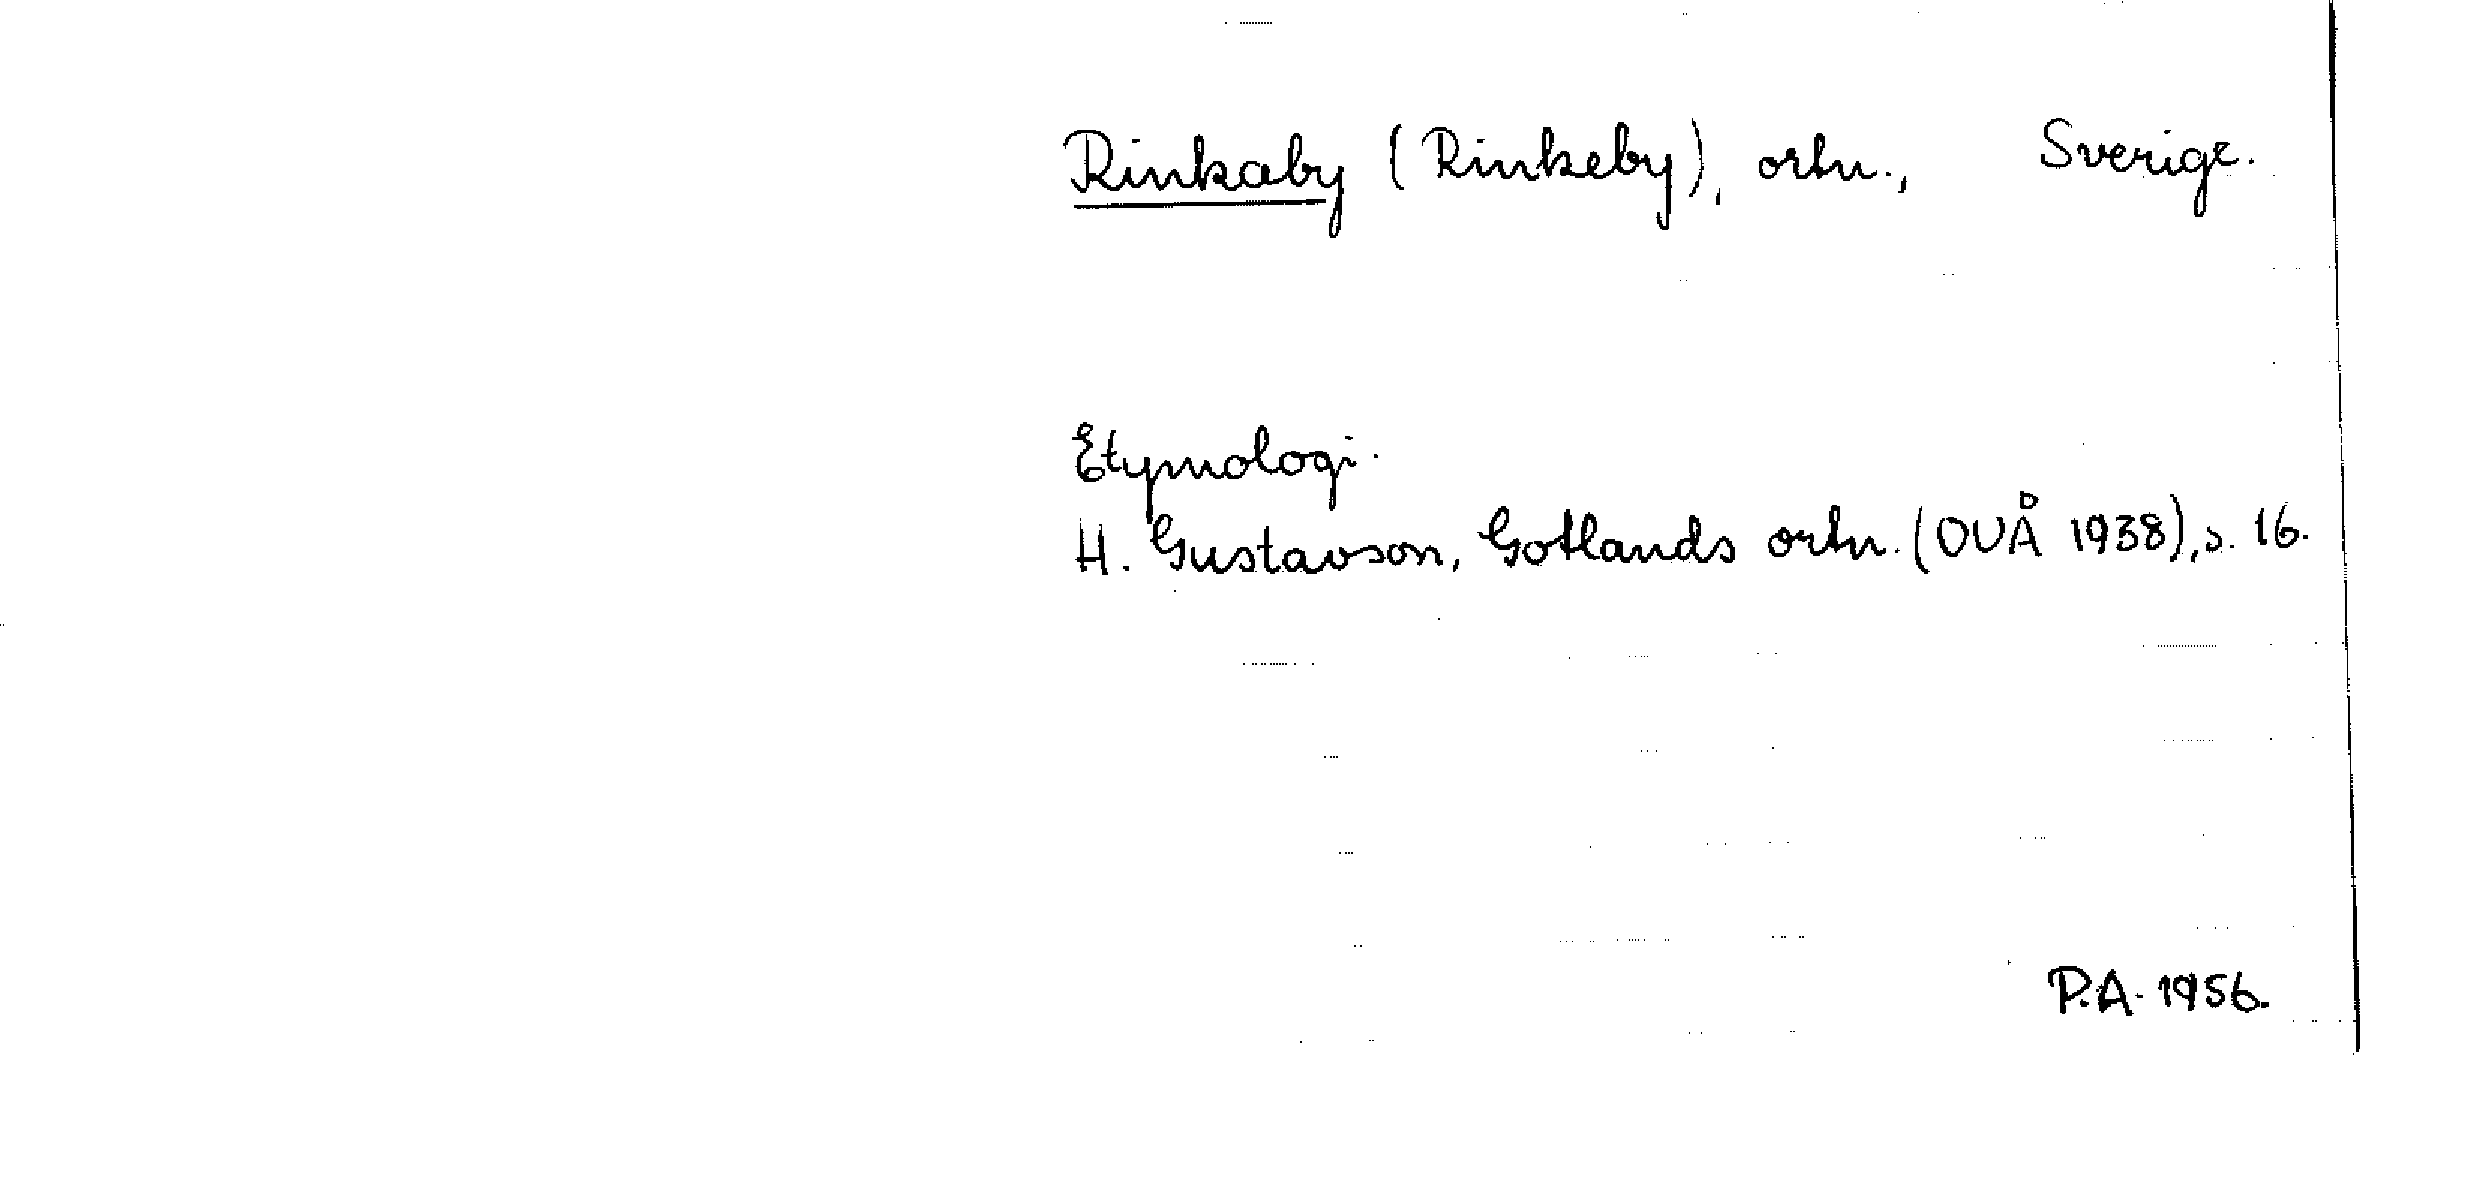 Rinkaby (Rinkeby), ortn., Sverige.
Etymologi.
H. Gustavson, Gotlands ortn. (OUÅ 1938), s. 16.
P.A. 1956.